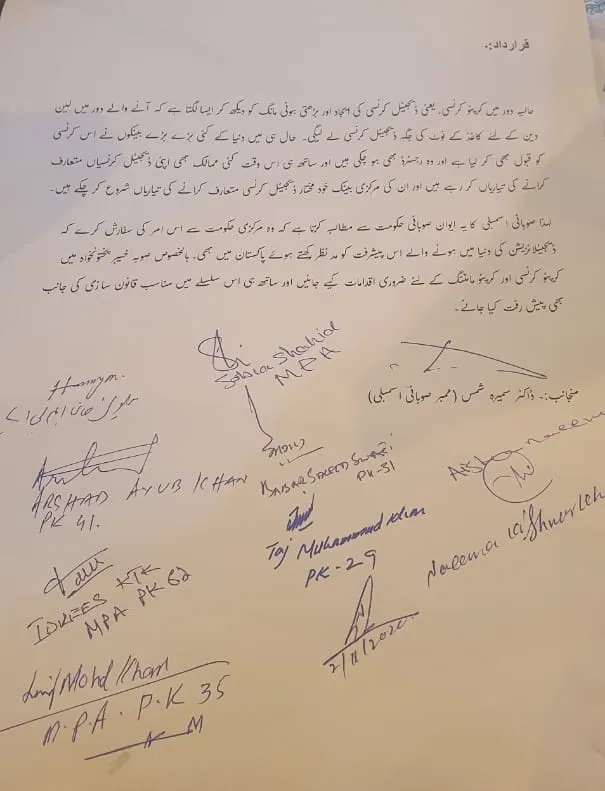 قرارداد:.
حالیہ دور میں کرپٹو کرنسی۔ یعنی ڈیجیٹل کرنسی کی ایجاد اور بڑھتی ہوئی مانگ کو دیکھ کر ایسا لگتا ہے کہ آنے والے دور میں لین
دین کے لئے کاغذ کے نوٹ کی جگہ ڈیجیٹل کرنسی لے لیگی۔ حال ہی میں دنیا کے کئی بڑے بڑے بینکوں نے اس کرنسی
کو قبول بھی کر لیا ہے اور وہ رجسٹرڈ بھی ہو چکی ہیں اور ساتھ ہی اس وقت کئی ممالک بھی اپنی ڈیجیٹل کرنسیاں متعارف
کرانے کی تیاریاں کر رہے ہیں اور ان کی مرکزی بینک خود مختار ڈیجیٹل کرنسی متعارف کرانے کی تیاریاں شروع کر چکے ہیں۔
لہذا صوبائی اسمبلی کا یہ ایوان صوبائی حکومت سے مطالبہ کرتا ہے کہ وہ مرکزی حکومت سے اس امر کی سفارش کرے کہ
ڈیجیٹلائزیشن کی دنیا میں ہونے والے اس پیشرفت کو مد نظر رکھتے ہوے پاکستان میں بھی۔ بالخصوص صوبہ خیبر پختونخواہ میں
کرپٹو کرنسی اور کرپٹو مائننگ کے لئے ضروری اقدامات کیے جائیں اور ساتھ ہی اس سلسلے میں مناسب قانون سازی کی جانب
بھی پیش رفت کیا جائے۔
منجانب:۔ ڈاکٹر سمیرہ شمس (ممبر صوبائی اسمبلی)
Sobia Shahid
MPA
Humayun
ARSHAD AYUB KHAN
PK 41.
PK-31
Taj Muhammad Khan
PK-29
Aisha naeem
Naeema Kishwar Kh
IDREES KTK
MPA PK 62
2/11/2020
Mohd Khan
M.P.A. P.K 35